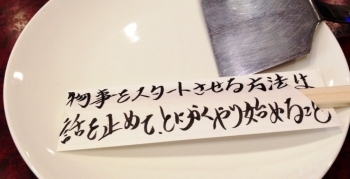 物事をスタートさせる方法は
話を止めて、とにかくやり始めること